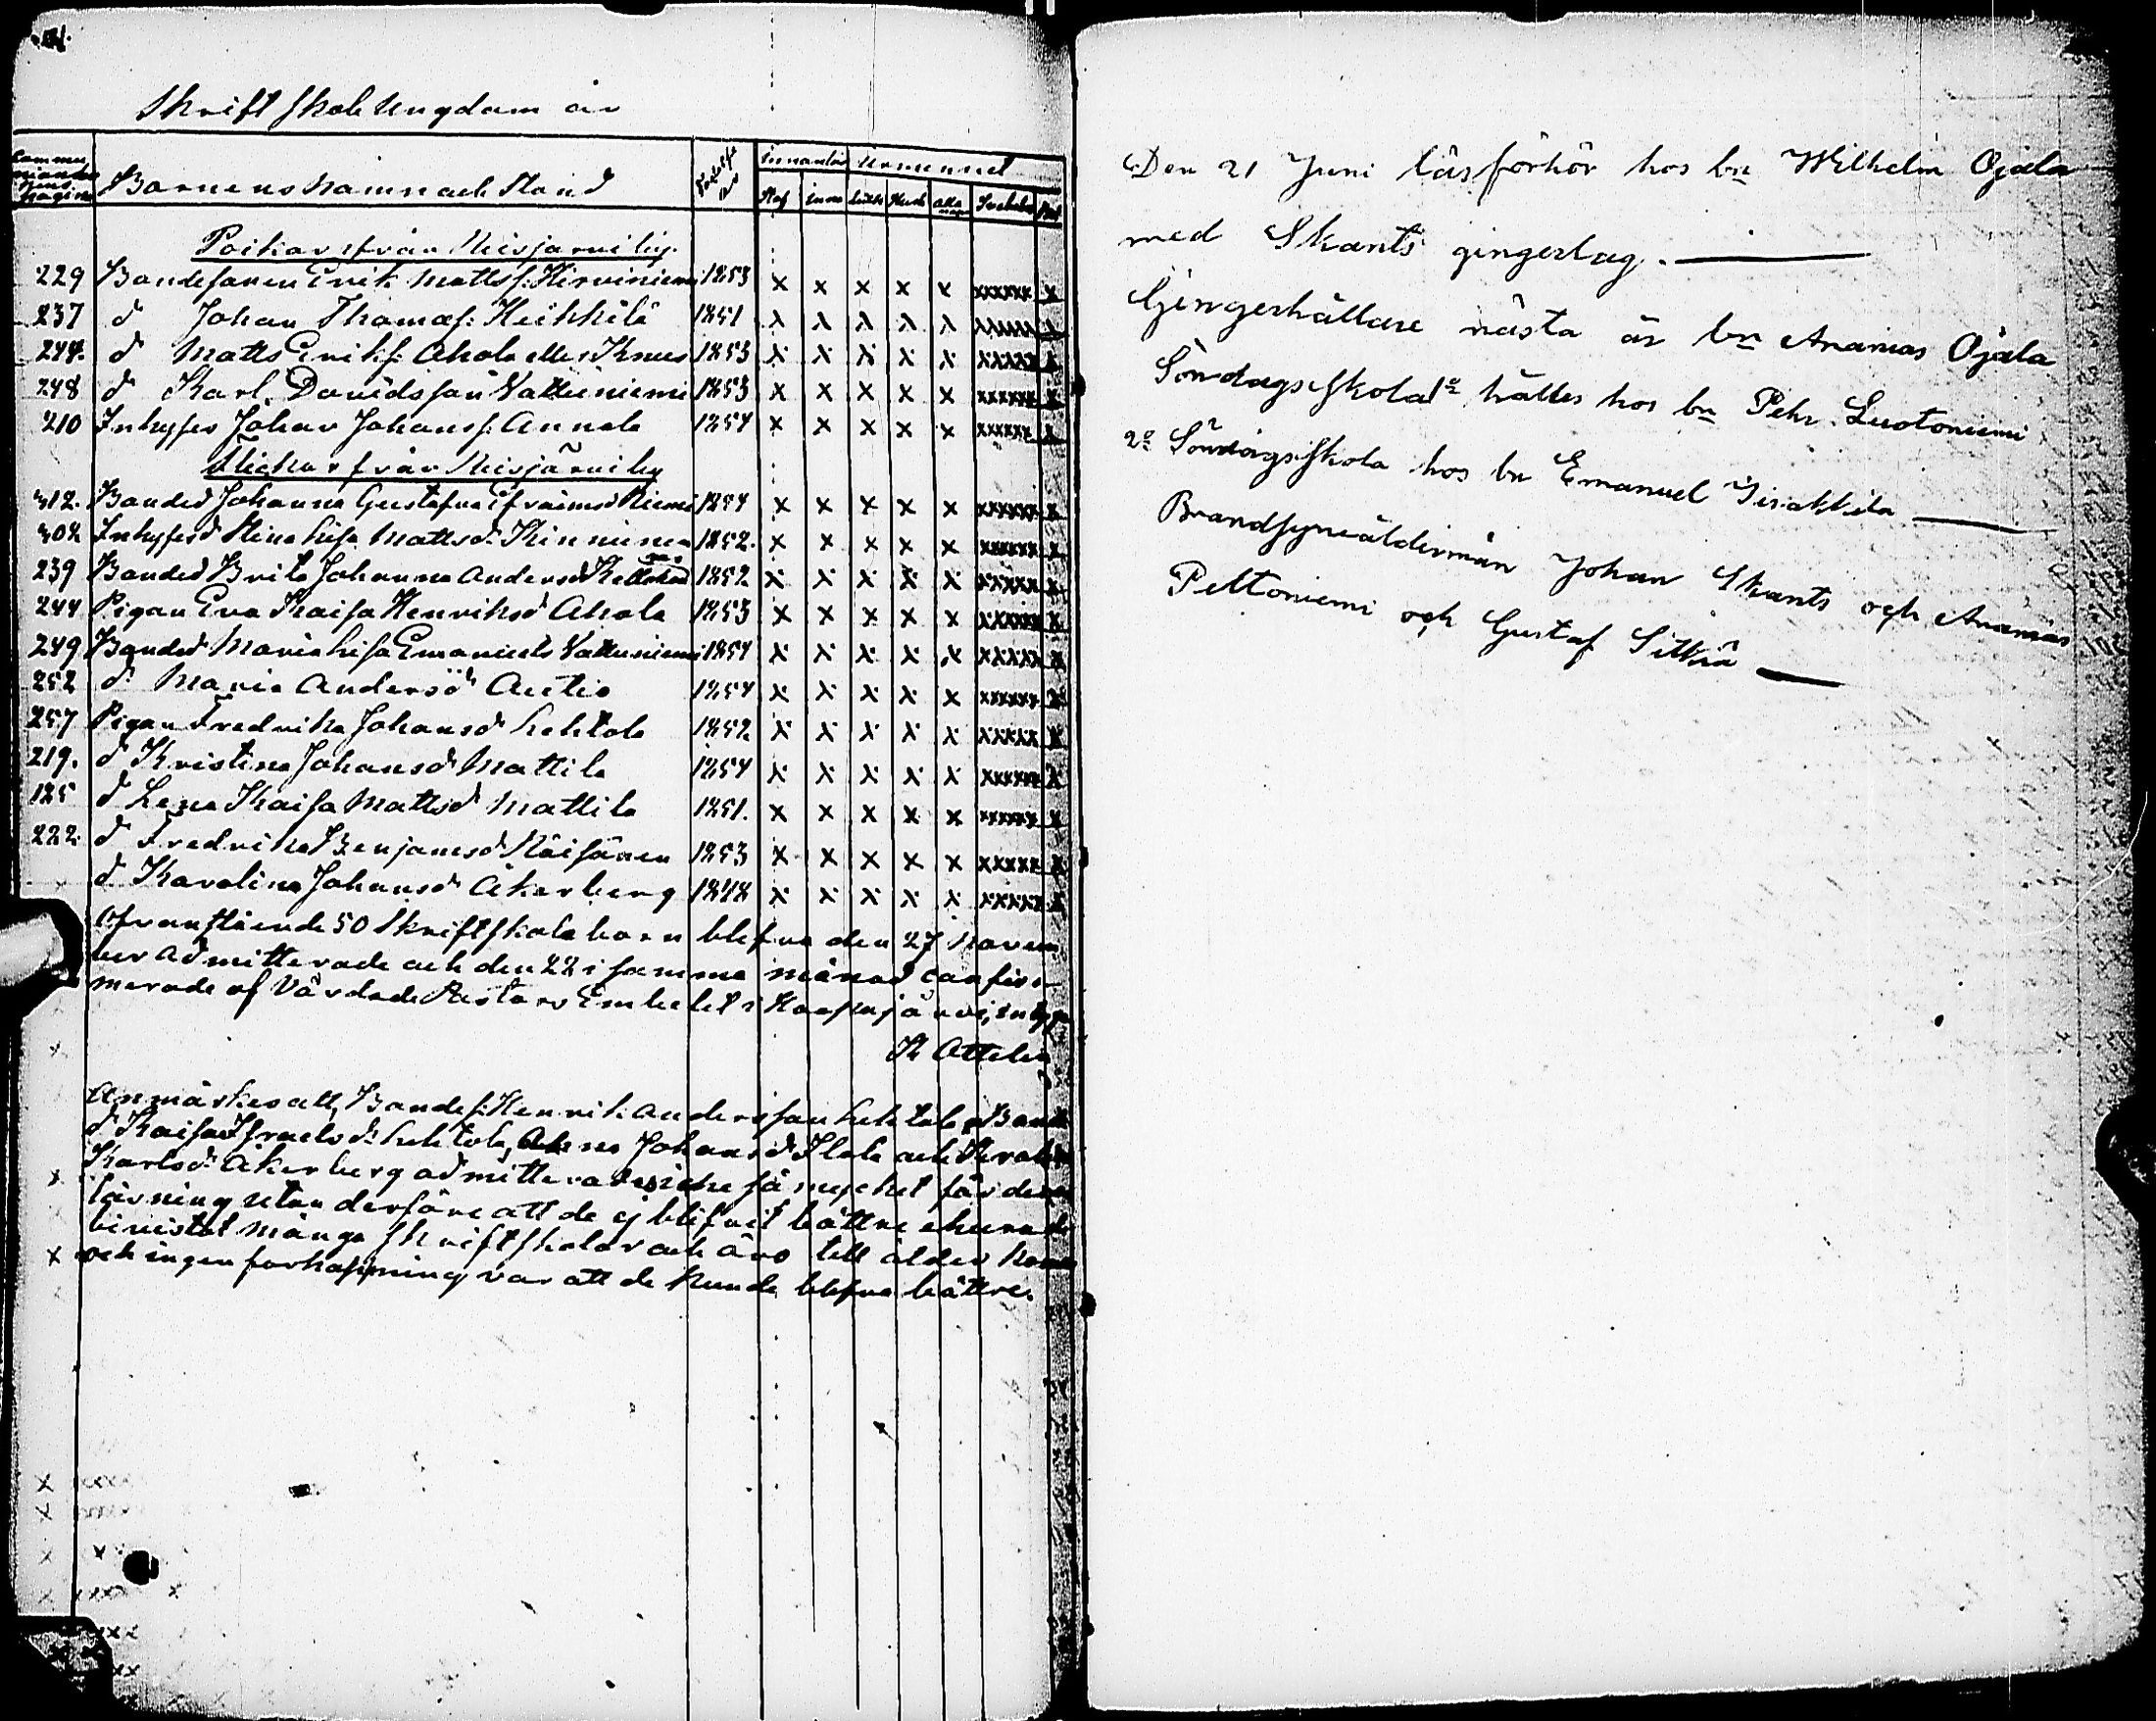 Skriftskole Ungdom år
Communionbokens pagina Barnens namn och Stånd Födelse År Innanläs Utur minnet
Staf innan Luth Hush Alla Svebelii
Poikar ifrån Reisjärvi by.
229 Bondesonen Erik Mattsf: Hirviniemi 1853 x x x x x xxxxxx x
237 d Johan Thomasf: Heikkilä 1851 x x x x x xxxxxx x
244. d Matts Eriksf: Ahola eller Knuus 1853 x x x x x xxxxx x
248 d Karl Davidsson Vattuniemi 1853 x x x x x xxxxxx x
210 Inhyses Johan Johansf: Annala 1854 x x x x x xxxxxx x
Flickor från Reisjärvi by
412. Bonded Johanna Gustafva Efraimsd Niemi 1854 x x x x x xxxxxx x
402 Inhysesd Stina Lisa Mattsd: Kinnunen 1852. x x x x x xxxxxx x
239 Bonded Brita Johanna Andersd 1852 x x x x x xxxxxx x
244 Pigan Eva Kaisa Henriksd Ahola 1853 x x x x x xxxxxx x
249 Bonded Maria Lisa Emanuels Vattuniemi 1854 x x x x x xxxxx x
252 d Maria Andersd Autio 1854 x x x x x xxxxxx x
257 Pigan Fredrika Johansd Lehtola 1852 x x x x x xxxxx x
219. d Kristina Johansd Mattila 1854 x x x x x xxxxxx x
185 d Lena Kaisa Mattsd Mattila 1851. x x x x x xxxxxx x
222. d Fredrika Benjamsd Räisänen 1853 x x x x x xxxxx x
d Karolina Johansd Åkerberg 1848 x x x x x xxxxx x
Ofvanstående 50 Skriftskolebarn blefvo den 27 Novem
ber Admitterade och den 28 i samma månad confir-
merade af Vårdade Pastors Embetet i Haapajärvi, intyga
K Attelin
Anmärkes att, Bondes: Henrik Andersson Lehtola, Bonde
d Kaisa Israelsd: Lehtola, Anna Johansd Ilola och
Karlsd: Åkerberg admitterades icke så mycket för deras
läsning utan derföre att de ej blifvit bättre ehuru de
bivistat många Skriftskolor och äro till ålder komna
och ingen förhoppning var att de kunde blifva bättre.
Den 21 Juni läsförhör hos bn Wilhelm Ojala
med Skants gingerlag. —
Gingerhållare nästa år bn Ananias Ojala
Söndagsskola 1o hålles hos bn Pehr Luotoniemi
2o Söndagsskola hos bn Emanuel Tirakkila —
Brandsyneåldermän Johan Skants och Ananias
Peltoniemi och Gustaf Sitkiä —